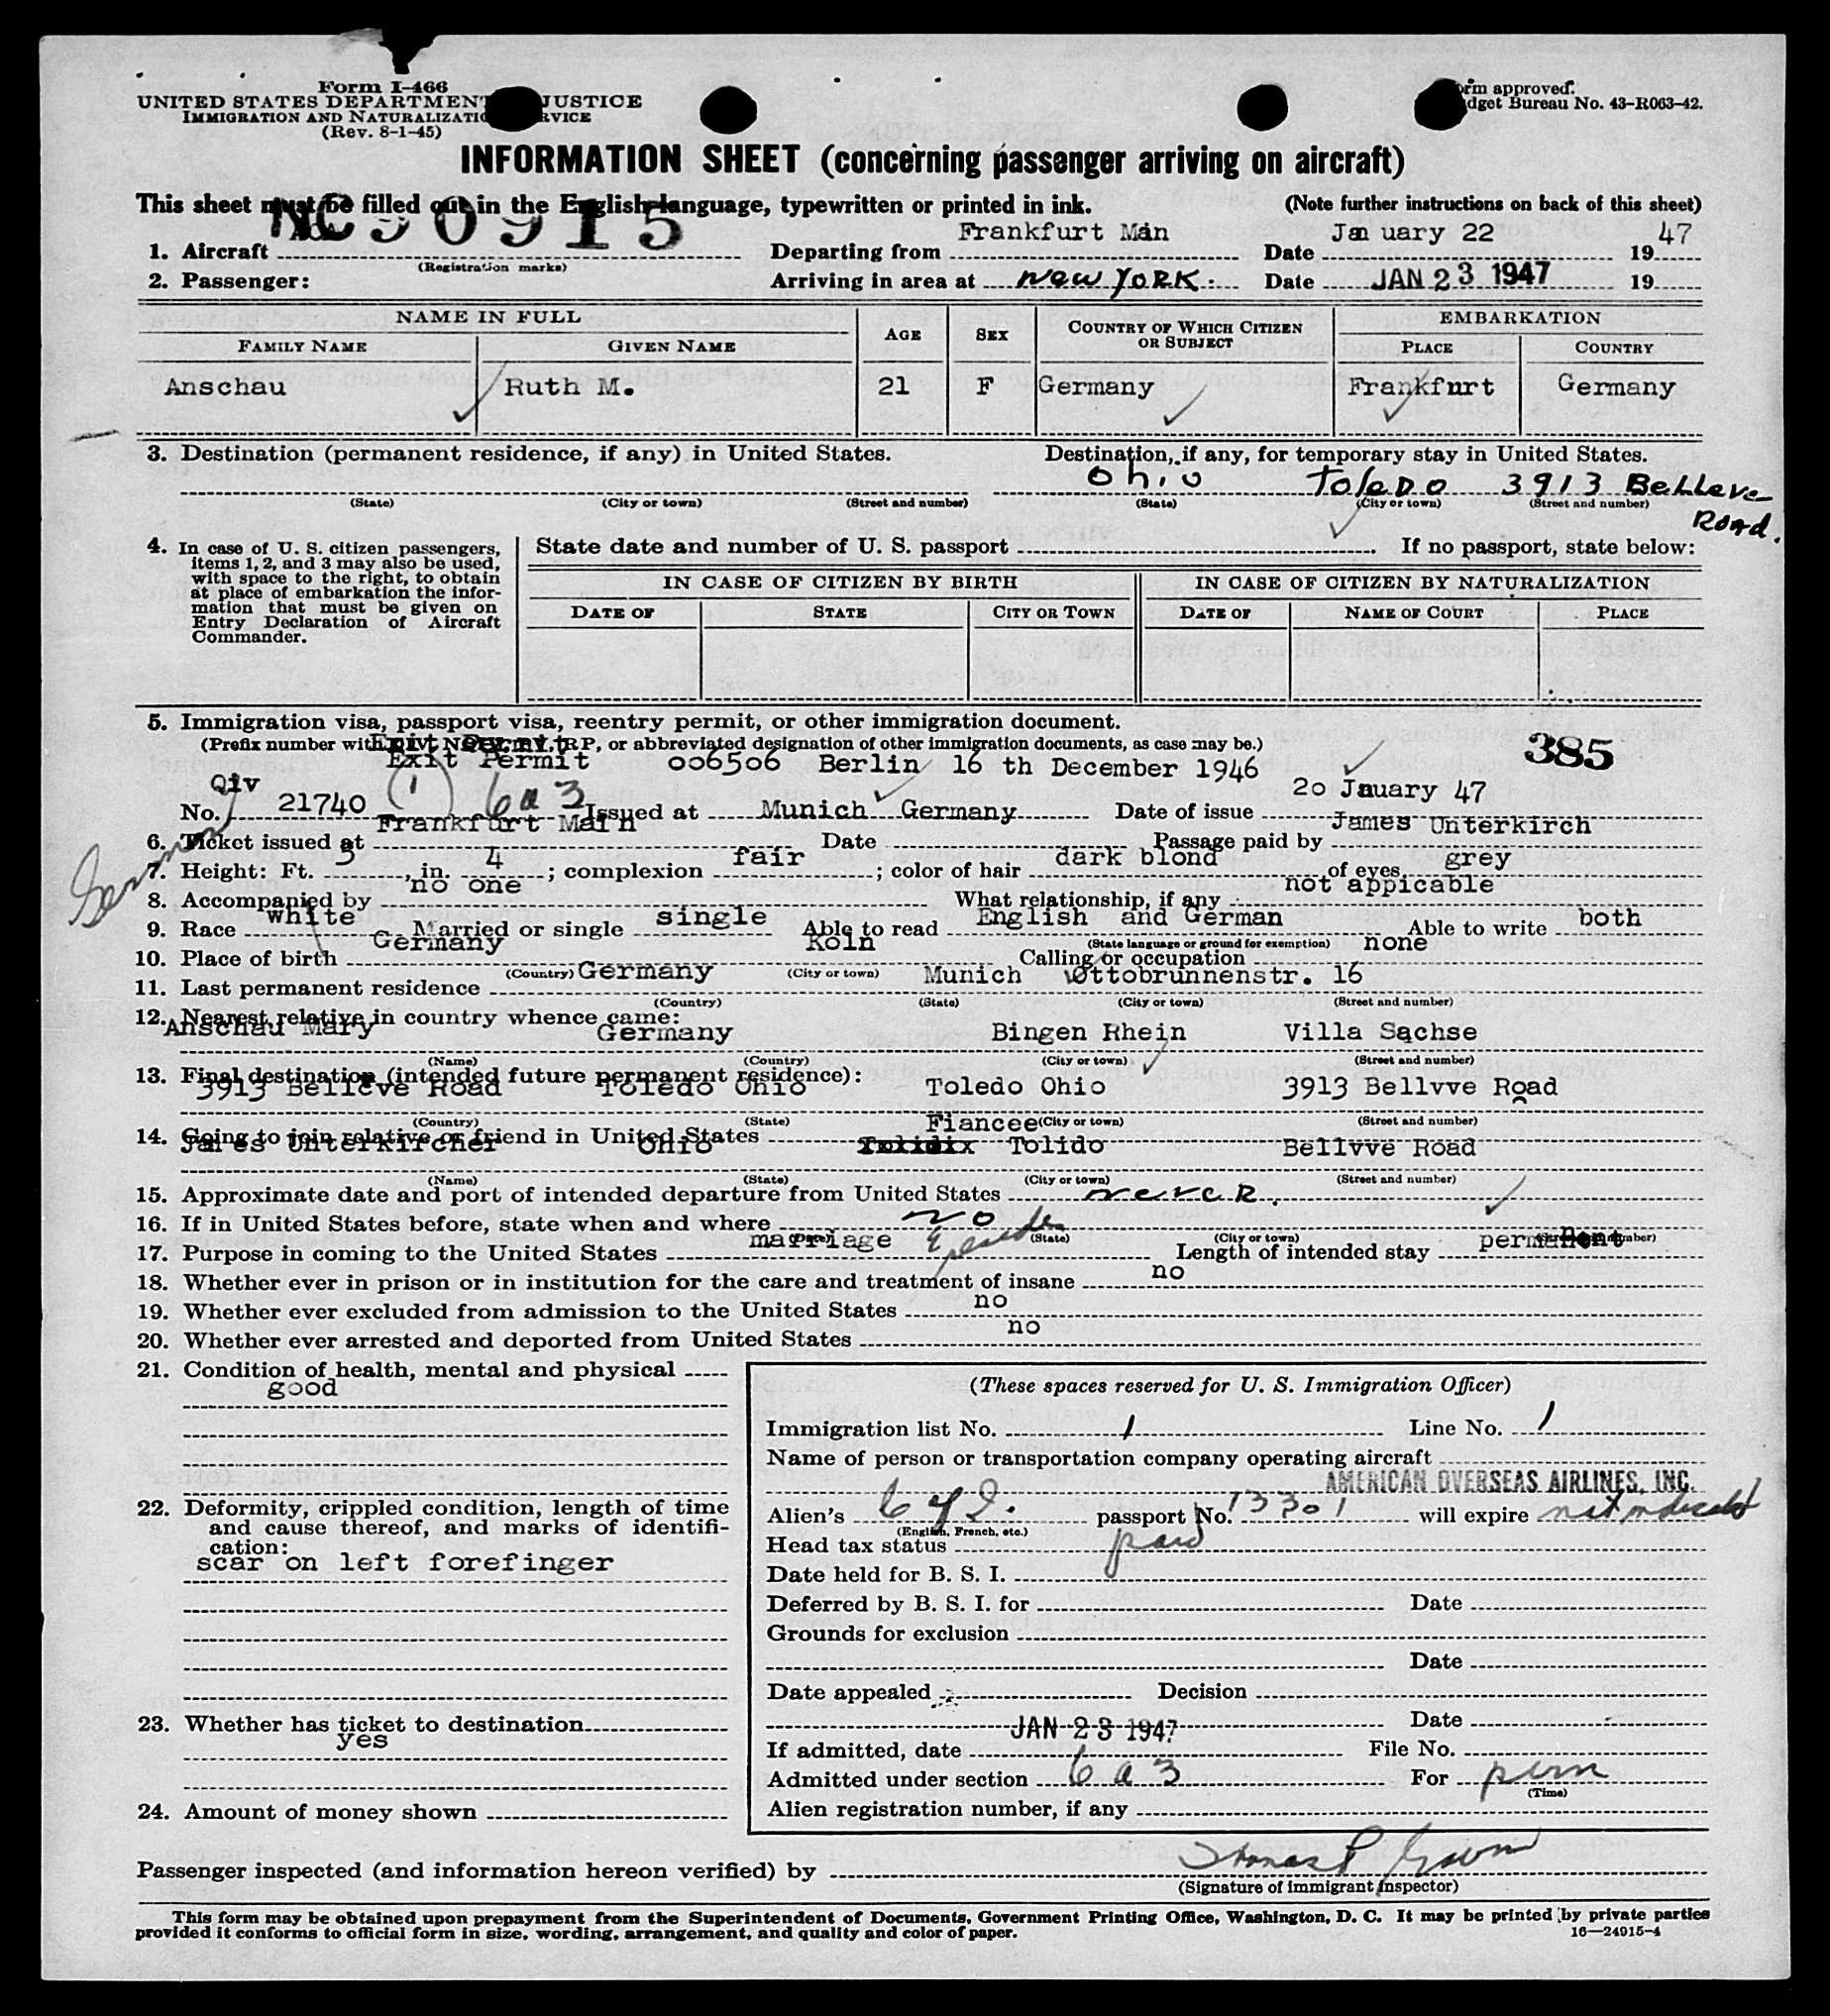 Form I-466
UNITED STATES DEPARTMENT JUSTICE
IMMIGRATION AND NATURALIZATION SERVICE
(Rev. 8-1-45)
rm approved.
dget Bureau No. 43-R063-42.
INFORMATION SHEET (concerning passenger arriving on aircraft)
This sheet must be filled out in the English language, typewritten or printed in ink. (Note further instructions on back of this sheet)
NC 90915
1. Aircraft (Registration marks) Departing from Frankfurt Main Date January 22 1947
2. Passenger: Arriving in area at NEW YORK. Date JAN 23 1947 19
NAME IN FULL AGE SEX COUNTRY OF WHICH CITIZEN OR SUBJECT EMBARKATION
FAMILY NAME GIVEN NAME PLACE COUNTRY
Anschau Ruth M. 21 F Germany Frankfurt Germany
3. Destination (permanent residence, if any) in United States. Destination, if any, for temporary stay in United States.
Ohio Toledo 3913 Belleve Road.
(State) (City or town) (Street and number) (State) (City or town) (Street and number)
4. In case of U. S. citizen passengers, items 1, 2, and 3 may also be used, with space to the right, to obtain at place of embarkation the information that must be given on Entry Declaration of Aircraft Commander.
State date and number of U. S. passport If no passport, state below:
IN CASE OF CITIZEN BY BIRTH IN CASE OF CITIZEN BY NATURALIZATION
DATE OF STATE CITY OR TOWN DATE OF NAME OF COURT PLACE
5. Immigration visa, passport visa, reentry permit, or other immigration document.
(Prefix number with RP, or abbreviated designation of other immigration documents, as case may be.)
385
Exit Permit 006506 Berlin 16 th December 1946
Qiv
No. 21740 (1) 6a3 Issued at Munich Germany Date of issue 20 Jauary 47
6. Ticket issued at Frankfurt Main Date Passage paid by James Unterkirch
German
7. Height: Ft. 5, in. 4; complexion fair; color of hair dark blond of eyes grey
8. Accompanied by no one What relationship, if any not appicable
9. Race white Married or single single Able to read English and German Able to write both
(State language or ground for exemption)
10. Place of birth Germany Köln Calling or occupation none
(Country) (City or town)
11. Last permanent residence Germany Munich Ottobrunnenstr. 16
(Country) (State) (City or town) (Street and number)
12. Nearest relative in country whence came:
Anschau Mary Germany Bingen Rhein Villa Sachse
(Name) (Country) (City or town) (Street and number)
13. Final destination (intended future permanent residence):
3913 Belleve Road Toledo Ohio Toledo Ohio 3913 Bellvve Road
(Country) (State) (City or town) (Street and number)
14. Going to join relative or friend in United States Fiancee
James Unterkircher Ohio Tolido Bellvve Road
(Name) (State) (City or town) (Street and number)
15. Approximate date and port of intended departure from United States never.
16. If in United States before, state when and where no
(Date) (State) (City or town) (Street and number)
17. Purpose in coming to the United States marriage Length of intended stay permanent
18. Whether ever in prison or in institution for the care and treatment of insane no
19. Whether ever excluded from admission to the United States no
20. Whether ever arrested and deported from United States no
21. Condition of health, mental and physical
good
22. Deformity, crippled condition, length of time and cause thereof, and marks of identification:
scar on left forefinger
23. Whether has ticket to destination
yes
24. Amount of money shown
(These spaces reserved for U. S. Immigration Officer)
Immigration list No. 1 Line No. 1
Name of person or transportation company operating aircraft
AMERICAN OVERSEAS AIRLINES, INC.
Alien's passport No. 13301 will expire not indicated
(English, French, etc.)
Head tax status paid
Date held for B. S. I.
Deferred by B. S. I. for Date
Grounds for exclusion
Date
Date appealed Decision
Date
If admitted, date JAN 23 1947 File No.
Admitted under section 6 a 3 For perm
(Time)
Alien registration number, if any
Passenger inspected (and information hereon verified) by
(Signature of Immigrant Inspector)
This form may be obtained upon prepayment from the Superintendent of Documents, Government Printing Office, Washington, D. C. It may be printed by private parties
provided it conforms to official form in size, wording, arrangement, and quality and color of paper.
16—24915-4